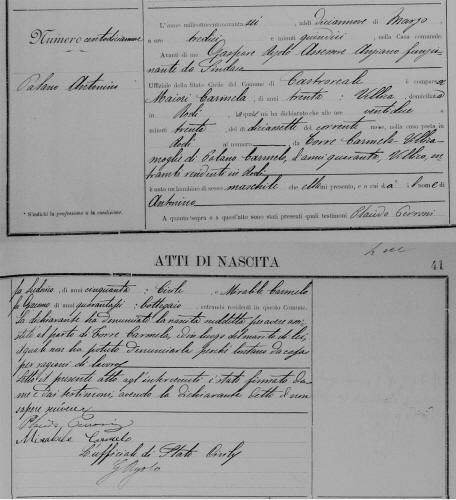 Numero centodiciannove
Palano Antonino
* S'indichi la professione o la condizione.
L'anno milleottocentonovantasei, addì diciannove di Marzo,
a ore tredici e minuti quindici, nella Casa comunale.
Avanti di me Gaspare
Assessore Anziano funzio
nante da Sindaco
Uffiziale dello Stato Civile del Comune di Castroreale è comparsa
Maiori Carmela, di anni trenta, Villica, domiciliata
in Rodì, la quale mi ha dichiarato che alle ore ventidue
minuti trenta, del dì diciassette del corrente mese, nella casa posta in
Rodì al numero, da Torre Carmela Villica
moglie di Palano Carmelo, d'anni quaranta, Villico, en
trambi residenti in Rodì
è nato un bambino di sesso maschile che ella mi presenta, e a cui dà il nome di
Antonino
A quanto sopra e a quest'atto sono stati presenti quali testimoni Placido
ATTI DI NASCITA
41
fu Isidoro, di anni cinquanta, Civile e Mirabile Carmelo
fu Giacomo di anni quarantasei, Bottegaio, entrambi residenti in questo Comune.
La dichiarante ha denunciato la nascita suddetta per avere assi
stito al parto di Torre Carmela, ed in luogo del marito di lei,
il quale non ha potuto denunciarla perché lontano da casa
per ragioni di lavoro
Letto il presente atto agl'intervenuti è stato firmato da
me e dai testimoni, avendo la dichiarante detto di non
sapere scrivere
Placido
Mirabile Carmelo
L'uffiziale di Stato Civile